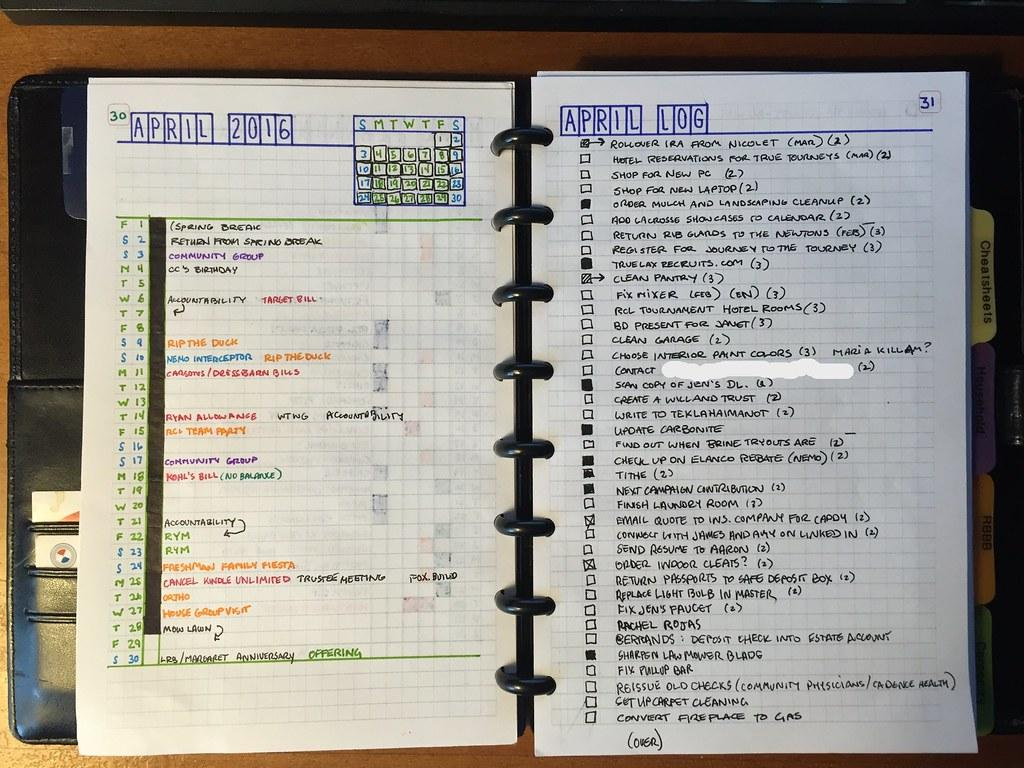 30
APRIL 2016
S M T W T F S
1 2
3 4 5 6 7 8 9
10 11 12 13 14 15 16
17 18 19 20 21 22 23
24 25 26 27 28 29 30
F 1 (SPRING BREAK
S 2 RETURN FROM SPRING BREAK
S 3 COMMUNITY GROUP
M 4 CC'S BIRTHDAY
T 5
W 6 ACCOUNTABILITY TARGET BILL
T 7
F 8
S 9 RIP THE DUCK
S 10 NEMO INTERCEPTOR RIP THE DUCK
M 11 CARSONS/DRESSBARN BILLS
T 12
W 13
T 14 RYAN ALLOWANCE WTWG ACCOUNTABILITY
F 15 RCL TEAM PARTY
S 16
S 17 COMMUNITY GROUP
M 18 KOHL'S BILL (NO BALANCE)
T 19
W 20
T 21 ACCOUNTABILITY
F 22 RYM
S 23 RYM
S 24 FRESHMAN FAMILY FIESTA
M 25 CANCEL KINDLE UNLIMITED TRUSTEE MEETING FOX. BUILD
T 26 ORTHO
W 27 HOUSE GROUP VISIT
T 28 MOW LAWN
F 29
S 30 LRB/MARGARET ANNIVERSARY OFFERING
31
APRIL LOG
ROLLOVER IRA FROM NICOLET (MAR) (2)
HOTEL RESERVATIONS FOR TRUE TOURNEYS (MAR) (2)
SHOP FOR NEW PC (2)
SHOP FOR NEW LAPTOP (2)
ORDER MULCH AND LANDSCAPING CLEANUP (2)
ADD LACROSSE SHOWCASES TO CALENDAR (2)
RETURN RIB GUARDS TO THE NEWTONS (FEB) (3)
REGISTER FOR JOURNEY TO THE TOURNEY (3)
TRUELAX RECRUITS.COM (3)
CLEAN PANTRY (3)
FIX MIXER (FEB) (BN) (3)
RCL TOURNAMENT HOTEL ROOMS (3)
BD PRESENT FOR JANET (3)
CLEAN GARAGE (2)
CHOOSE INTERIOR PAINT COLORS (3) MARIA KILLAM?
CONTACT (2)
SCAN COPY OF JEN'S DL. (2)
CREATE A WILL AND TRUST (2)
WRITE TO TEKLAHAIMANOT (2)
UPDATE CARBONITE
FIND OUT WHEN BRINE TRYOUTS ARE (2)
CHECK UP ON ELANCO REBATE (NEMO) (2)
TITHE (2)
NEXT CAMPAIGN CONTRIBUTION (2)
FINISH LAUNDRY ROOM (3)
EMAIL QUOTE TO INS. COMPANY FOR CADDY (2)
CONNECT WITH JAMES AND AMY ON LINKED IN (2)
SEND RESUME TO AARON (2)
ORDER INDOOR CLEATS? (2)
RETURN PASSPORTS TO SAFE DEPOSIT BOX (2)
REPLACE LIGHT BULB IN MASTER (2)
FIX JEN'S FAUCET (2)
RACHEL ROJAS
BERTRANDS: DEPOSIT CHECK INTO ESTATE ACCOUNT
SHARPEN LAWMOWER BLADE
FIX PULLUP BAR
REISSUE OLD CHECKS (COMMUNITY PHYSICIANS/CADENCE HEALTH)
SET UP CARPET CLEANING
CONVERT FIREPLACE TO GAS
(OVER)
Cheatsheets
Household
RBBB